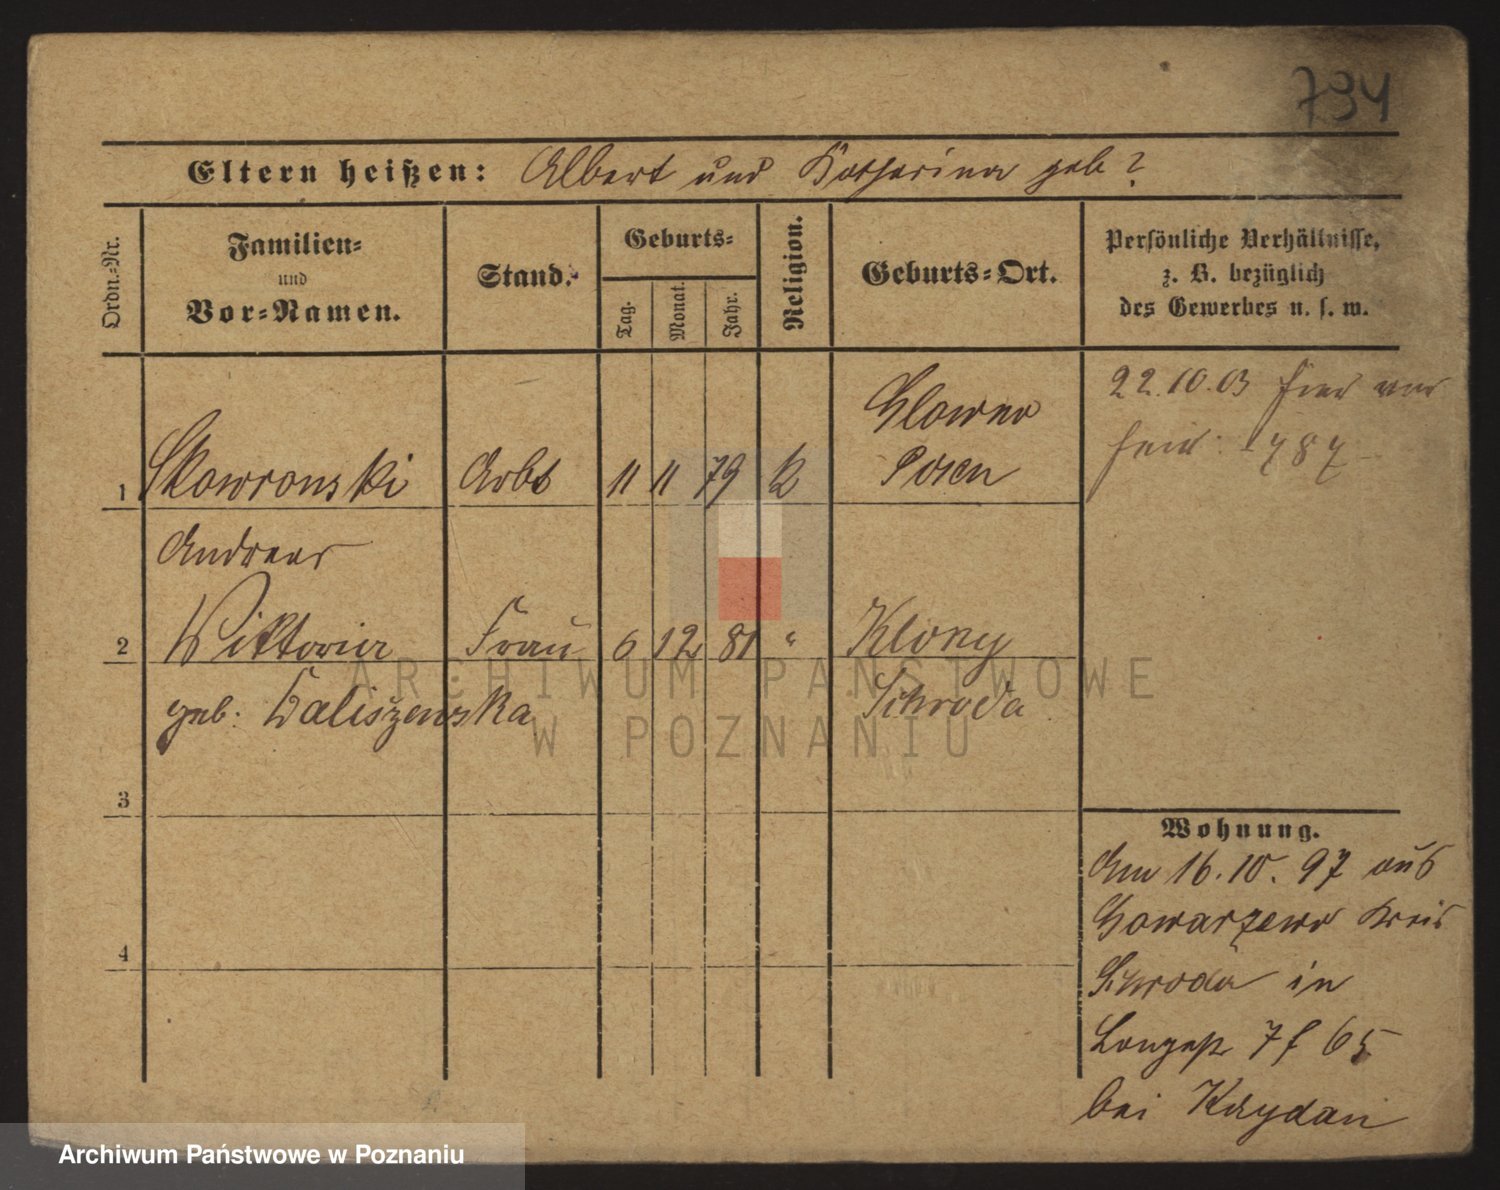 794
Eltern heißen: Albert und Katharina geb ?
Ordn.-Nr.
Familien-
und
Vor-Namen.
Stand.
Geburts-
Tag.
Monat.
Jahr.
Religion.
Geburts-Ort.
Persönliche Verhältnisse,
z. B. bezüglich
des Gewerbes u. s. w.
1 Skowronski Arbt 11 11 79 K Glowno
Posen
22.10.03
Andreas
2 Wiktoria Frau 6 12 81 " Klony
Schroda
geb:
3
4
Wohnung.
Am 16.10.97 aus
Gowarzewo Kreis
Schroda in
7 f 65
bei
ARCHIWUM PAŃSTWOWE
W POZNANIU
Archiwum Państwowe w Poznaniu